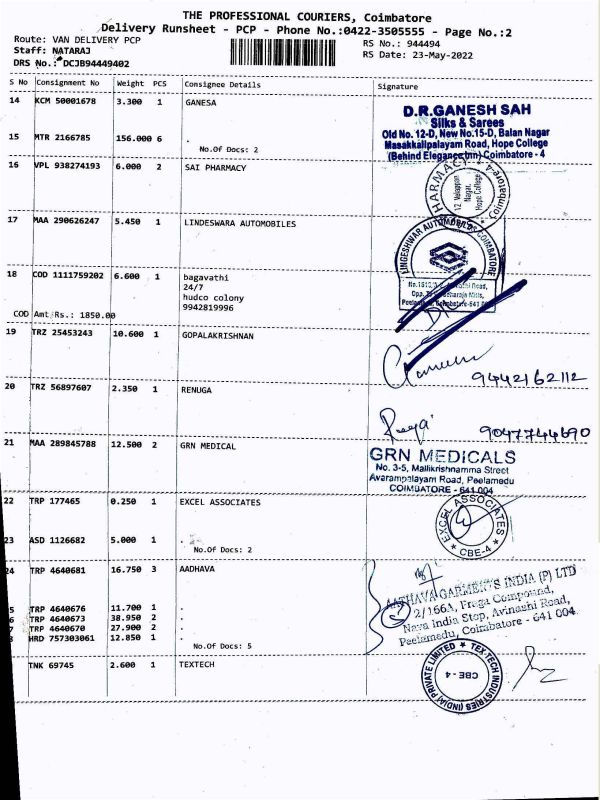 THE PROFESSIONAL COURIERS, Coimbatore
Delivery Runsheet - PCP - Phone No.:0422-3505555 - Page No.:2
Route: VAN DELIVERY PCP
Staff: NATARAJ
DRS No.: DCJB94449402
RS No.: 944494
RS Date: 23-May-2022
S No Consignment No Weight PCS Consignee Details Signature
14 KCM 50001678 3.300 1 GANESA
D.R.GANESH SAH
Silks & Sarees
Old No. 12-D, New No.15-D, Balan Nagar
Masakkalipalayam Road, Hope College
(Behind Elegance Inn) Coimbatore - 4
15 MTR 2166785 156.000 6 .
No.Of Docs: 2
16 VPL 938274193 6.000 2 SAI PHARMACY
PHARMACY
12, Velappan
Nagar,
Hope College
Coimbatore
17 MAA 290626247 5.450 1 LINDESWARA AUTOMOBILES
LINGESHWAR AUTOMOBILE COIMBATORE
18 COD 1111759202 6.600 1 bagavathi
24/7
hudco colony
9942819996
COD Amt Rs.: 1850.00
19 TRZ 25453243 10.600 1 GOPALAKRISHNAN
9442162112
20 TRZ 56897607 2.350 1 RENUGA
9047744690
21 MAA 289845788 12.500 2 GRN MEDICAL
GRN MEDICALS
No. 3-5, Mallikrishnamma Street
Avarampalayam Road, Peelamedu
COIMBATORE - 641 004
22 TRP 177465 0.250 1 EXCEL ASSOCIATES
EXCEL ASSOCIATES
* CBE-4 *
23 ASD 1126682 5.000 1 .
No.Of Docs: 2
24 TRP 4640681 16.750 3 AADHAVA
AADHAVA GARMENTS INDIA (P) LTD
2/166A, Fraga Compound,
Nava India Stop, Avinashi Road,
Peelamedu, Coimbatore - 641 004.
5 TRP 4640676 11.700 1 .
6 TRP 4640673 38.950 2 .
7 TRP 4640670 27.900 2 .
8 HRD 757303061 12.850 1 .
No.Of Docs: 5
TNK 69745 2.600 1 TEXTECH
TEX-TECH INDUSTRIES (INDIA) PRIVATE LIMITED
CBE - 4